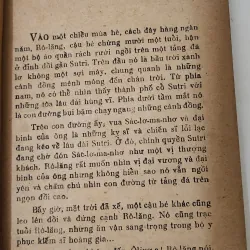 VÀO một chiều mùa hè, cách đây hàng ngàn
năm, Rô-lăng, cậu bé chừng mười một tuổi, hồn
hộ áo quần rách rưới ngồi trên một tảng đá
ở đỉnh đồi gần Sutri. Trên đầu nó là bầu trời xanh
lơ không một sợi mây, chung quanh là những
cánh đồng mênh mông đến chân trời. Từ phía
nam, nó có thể nhìn thấy thành phố cổ Sutri với
những tòa lâu đài hùng vĩ. Phía dưới tầm mắt nó
là con đường bụi bặm chạy ngang những cánh đồng.
Trên con đường ấy, vua Sác-lơ-ma-nhơ và đại
binh của ông gồm những kỵ sĩ và chiến sĩ lỗi lạc
đang kéo về lâu đài Sutri. Ở đó, chính quyền Sutri
đang chờ đón Sác-lơ-ma-nhơ như vị thượng
khách. Rô-lăng rất muốn nhìn vị đại vương và đại
binh của ông nhưng không biết làm thế nào nó vẫn
ngồi yên và chăm chú nhìn con đường từ tảng đá trên
ngọn đồi cao.
Bấy giờ, mặt trời đã xế, một cậu bé khác cũng
leo lên đồi và đứng cạnh Rô-lăng. Nó cũng trạc
tuổi Rô-lăng, nhưng ăn vận sang trọng trong bộ y
phục kiếm sĩ hoàng gia...
Rô-lăng nói